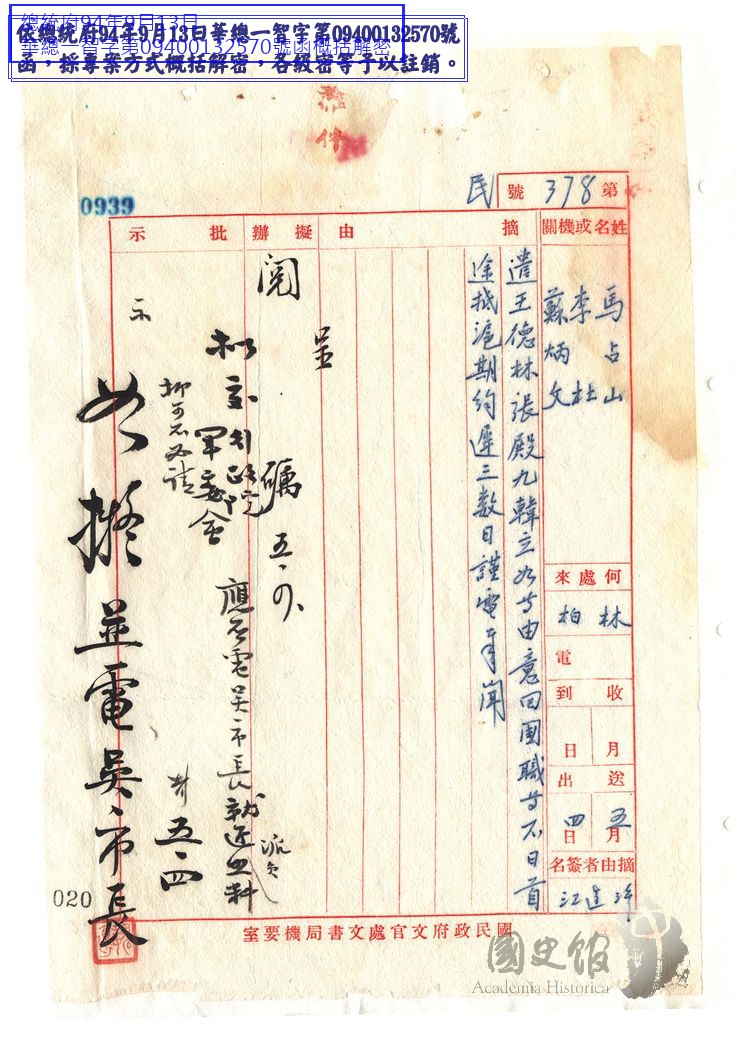 總統府94年9月13日
華總一智字第09400132570號函概括解密
依總統府94年9月13日華總一智字第09400132570號
函，採專案方式概括解密，各級密等予以註銷。
0939
第378號
民
姓名或機關
馬占山
李杜
蘇炳文
何處來
柏林
電
收到
月
日
送出
五月
四日
摘由者簽名
摘由
遣王德林張殿九韓立如等由意回國職等不日首
途抵滬期約遲三數日謹電奉聞
擬辦
呈
閱
五、四、
擬交行政院
軍委會
應否電吳市長就近照料
派員
抑可不必請
示
五、四
批示
如擬並電吳市長
020
國民政府文官處文書局機要室
國史館
Academia Historica